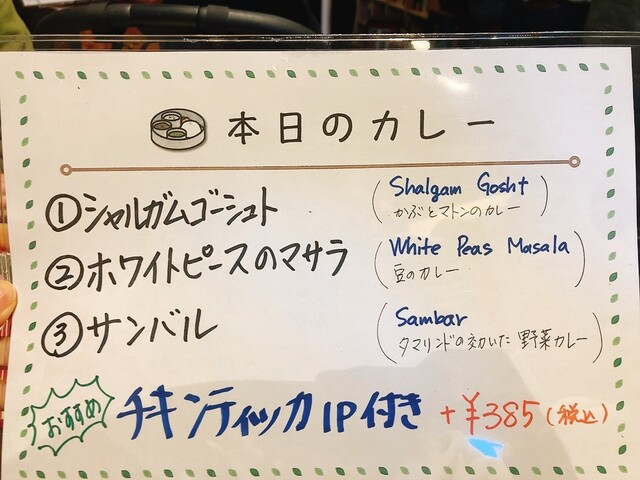 本日のカレー
①シャルガムゴーシュト
(Shalgam Gosht
かぶとマトンのカレー)
②ホワイトピースのマサラ
(White Peas Masala
豆のカレー)
③サンバル
(Sambar
タマリンドの効いた野菜カレー)
おすすめ チキンティッカ1P付き +¥385(税込)